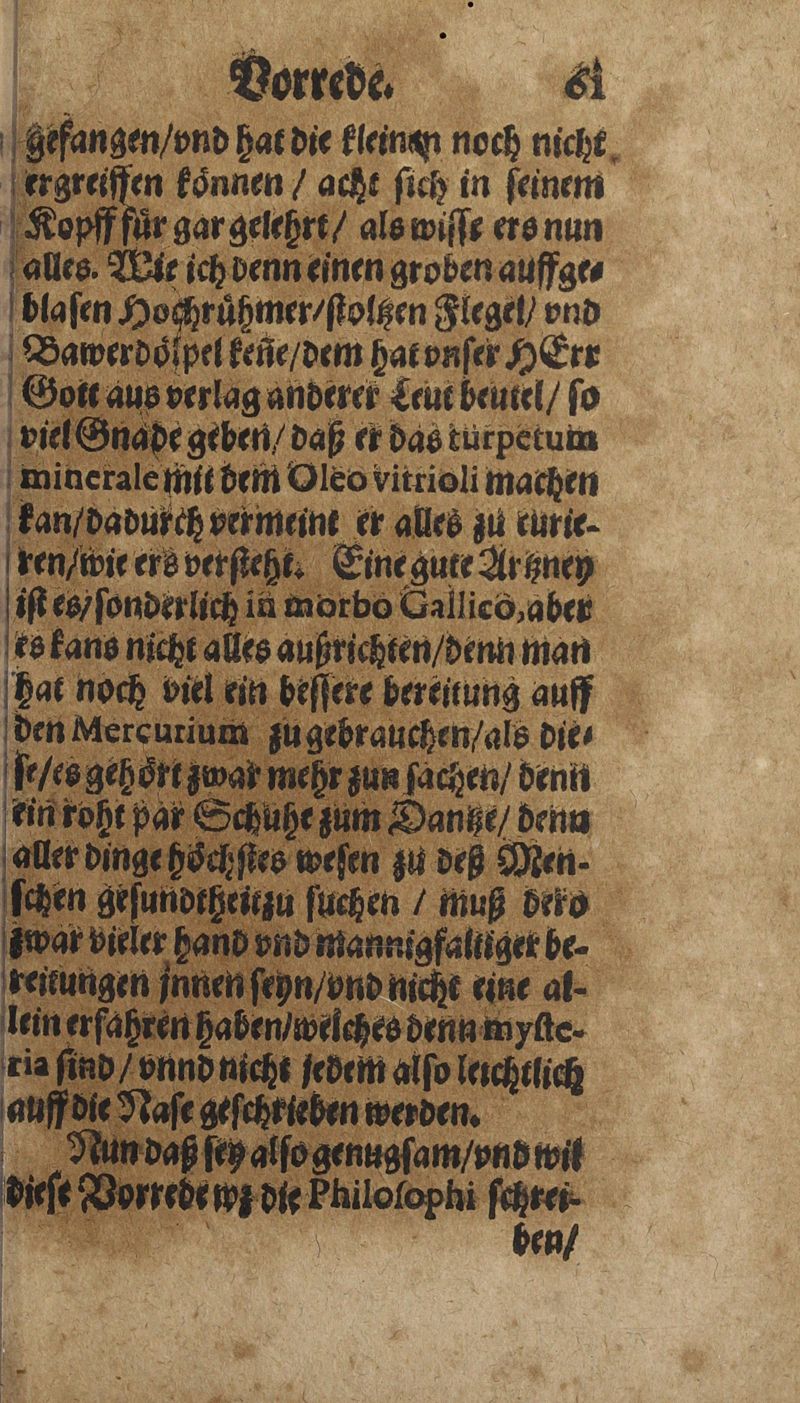 Vorrede. 61
gefangen/vnd hat die kleinen noch nicht
ergreiffen können / acht sich in seinem
Kopff für gar gelehrt/ als wisse ers nun
alles. Wie ich denn einen groben auffge-
blasen Hochrühmer/stoltzen Flegel/ vnd
Bawerdölpel keñe/dem hat vnser HErr
Gott aus verlag anderer Leut beutel/ so
viel Gnade geben/ daß er das turpetum
minerale mit dem Oleo vitrioli machen
kan/dadurch vermeint er alles zu curie-
ren/wie ers versteht. Eine gute Artzney
ist es/sonderlich in morbo Gallico, aber
es kans nicht alles außrichten/denn man
hat noch viel ein bessere bereitung auff
den Mercurium zu gebrauchen/als die-
se/es gehört zwar mehr zun sachen/ denn
ein roht par Schuhe zum Dantze/ denn
aller dinge höchstes wesen zu deß Men-
schen gesundtheit zu suchen / muß dero
zwar vieler hand vnd mannigfaltiger be-
reitungen jnnen seyn/vnd nicht eine al-
lein erfahren haben/welches denn myste-
ria sind / vnnd nicht jedem also leichtlich
auff die Nase geschrieben werden.
Nun daß sey also genugsam/vnd wil
diese Vorrede wz die Philosophi schrei-
ben/